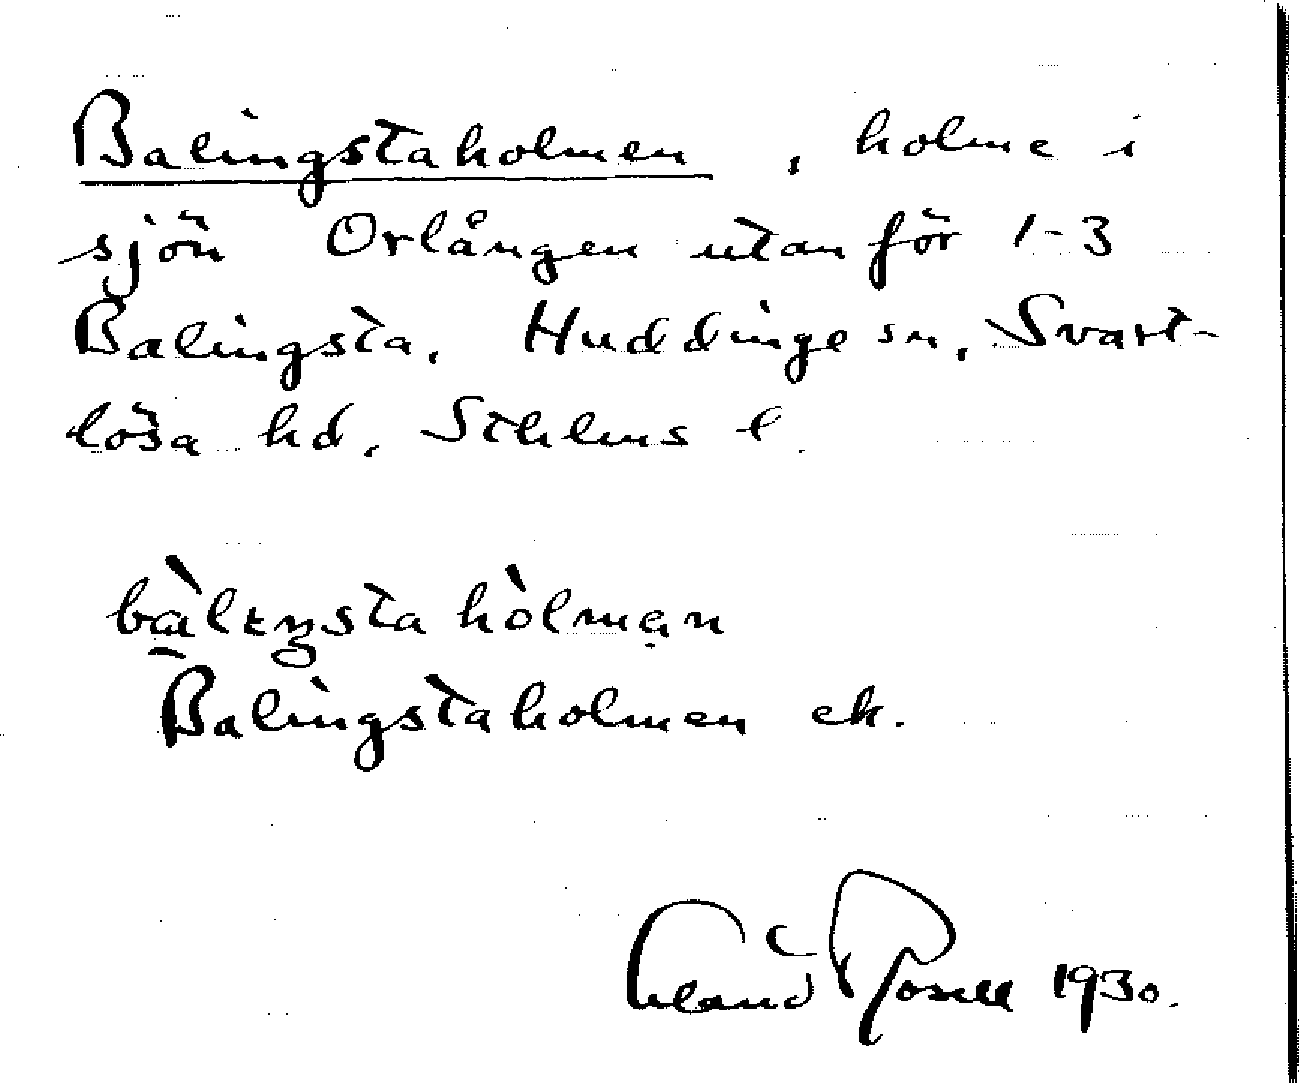 Balingstaholmen, holme i
sjön Orlången utanför 1-3
Balingsta, Huddinge sn, Svart-
lösa hd, Sthlms l.
bàlıŋstahòlmən
Balingstaholmen ek.
Erland Rosell 1930.